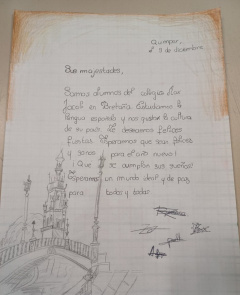 Quimper,
el 9 de diciembre
Sus majestades,
Somos alumnos del colegio Max
Jacob en Bretaña. Estudiamos la
lengua española y nos gusta la cultura
de su país. Le deseamos felices
fiestas. Esperamos que sean felices
y sanos para el año nuevo!
¡ Que se cumplan sus sueños!
Esperamos un mundo ideal y de paz
para todos y todas